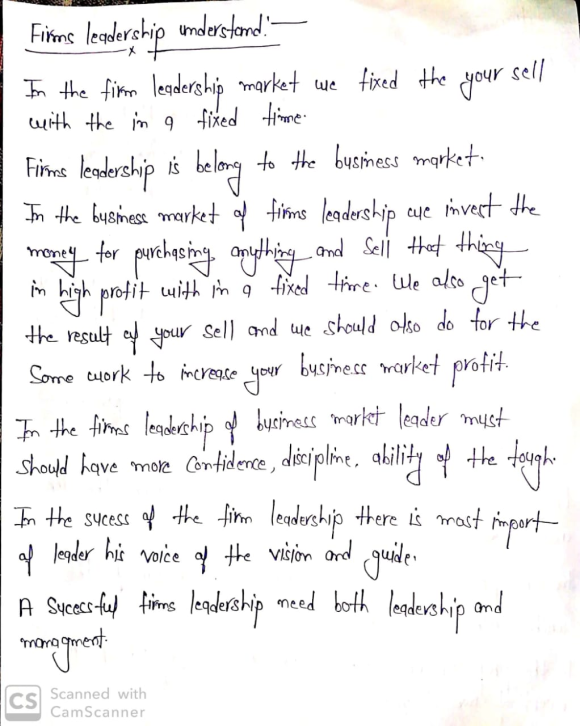 Firms leadership understand:-
In the firm leadership market we fixed the your sell
with the in a fixed time.
Firms leadership is belong to the business market.
In the business market of firms leadership we invest the
money for purchasing anything and sell that thing
in high profit with in a fixed time. We also get
the result of your sell and we should also do for the
Some work to increase your business market profit.
In the firms leadership of business markt leader must
should have more Confidence, discipline, ability of the tough.
In the sucess of the firm leadership there is most import
of leader his voice of the vision and guide.
A Sucessful firms leadership need both leadership and
managment.
CS Scanned with
CamScanner